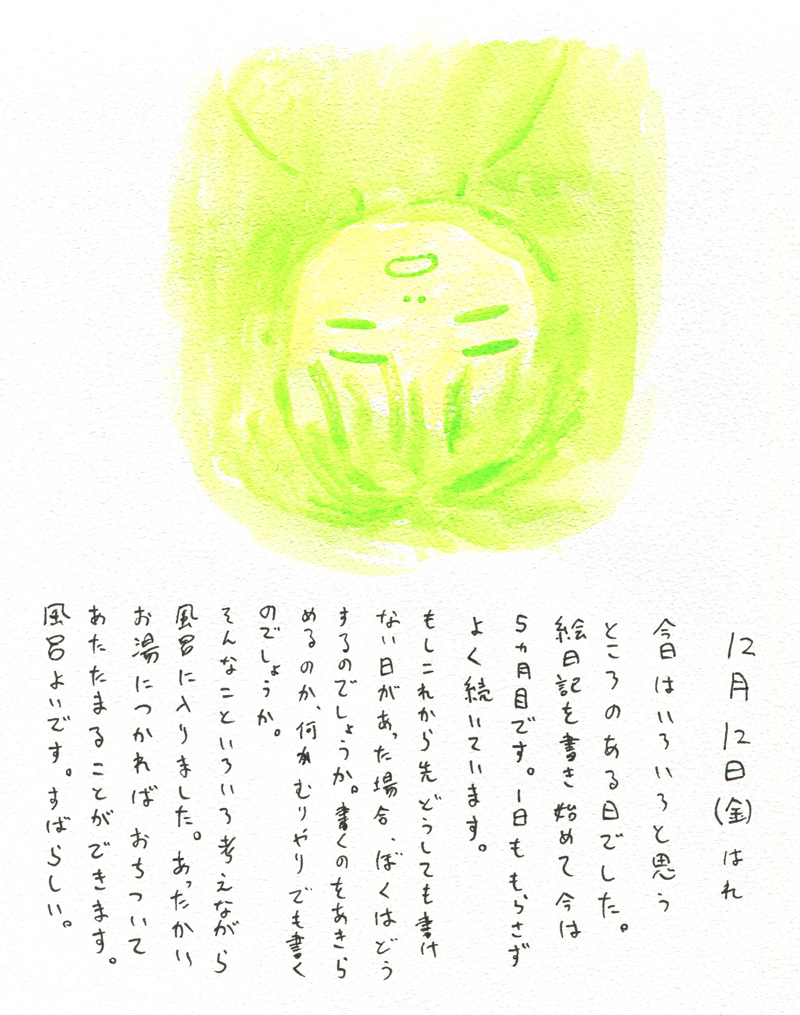 12月12日(金)はれ
今日はいろいろと思う
ところのある日でした。
絵日記を書き始めて今は
5ヵ月目です。1日ももらさず
よく続いています。
もしこれから先どうしても書け
ない日があった場合、ぼくはどう
するのでしょうか。書くのをあきら
めるのか、何かむりやりでも書く
のでしょうか。
そんなこといろいろ考えながら
風呂に入りました。あったかい
お湯につかればおちついて
あたたまることができます。
風呂よいです。すばらしい。